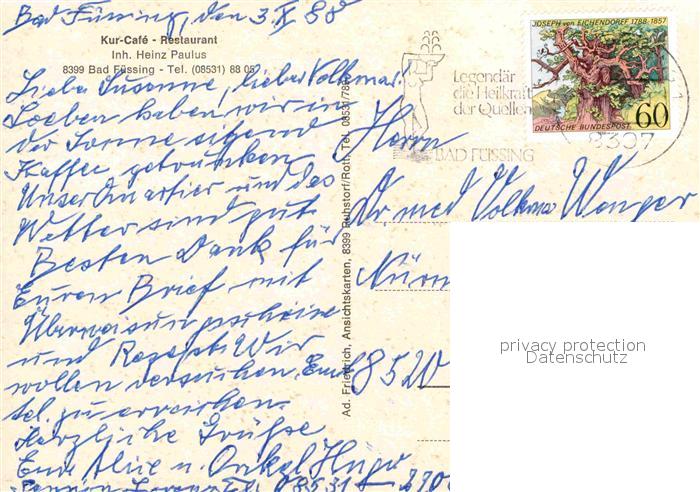 Bad Füssing, den 3. IX 88
Kur-Café - Restaurant
Inh. Heinz Paulus
8399 Bad Füssing - Tel. (08531) 88 05
Liebe Susanne, lieber Volkmar!
Soeben haben wir in
der Sonne sitzend
Kaffee getrunken.
Unser Quartier und das
Wetter sind gut.
Besten Dank für
Euren Brief mit
Überweisungsscheine
und Rezept. Wir
wollen versuchen, Euch
tel. zu erreichen.
Herzliche Grüße
Eure Alice u. Onkel Hugo
Pension Tel. 08531
Ad. Friedrich, Ansichtskarten, 8399 Ruhstorf/Rott, Tel. 08531/78
Legendär
die Heilkraft
der Quellen
BAD FÜSSING
JOSEPH von EICHENDORFF 1788-1857
60
DEUTSCHE BUNDESPOST
8397
Herrn
Dr med Volkmar Wenger
Nürn
8520
privacy protection
Datenschutz